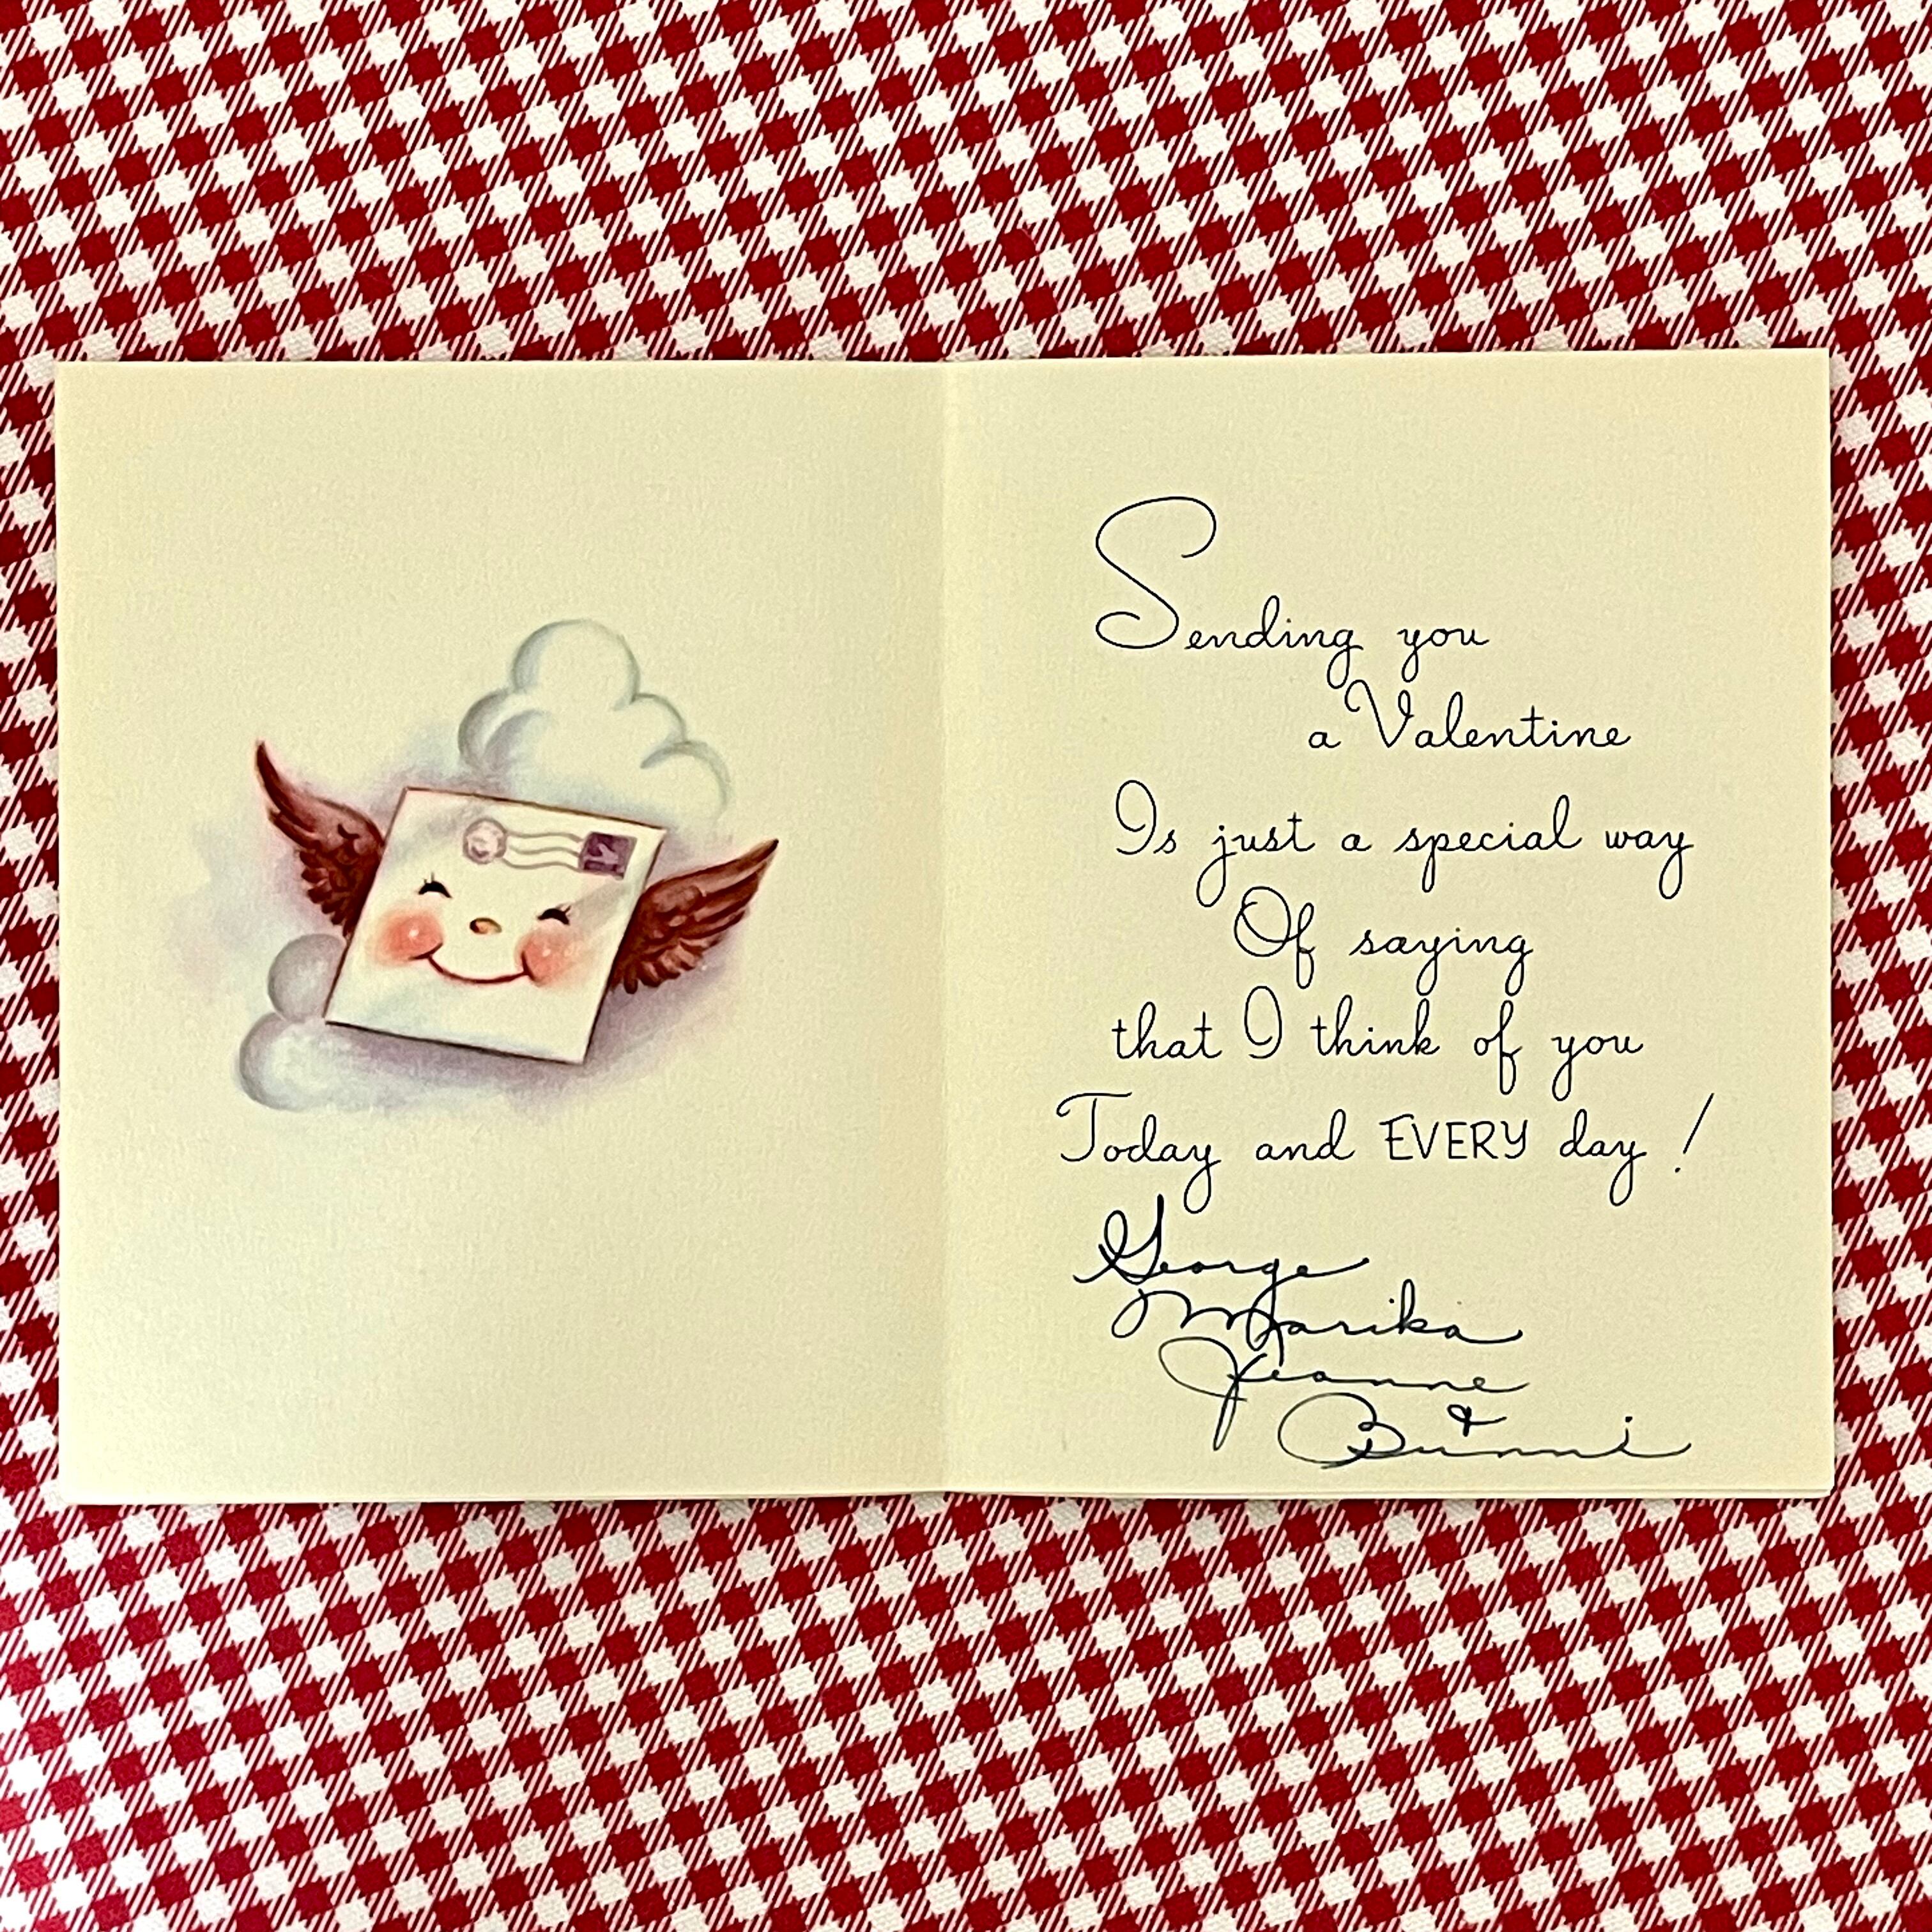 Sending you
a Valentine
Is just a special way
Of saying
that I think of you
Today and EVERY day !
George
Marika
Jeanne
&
Bunni